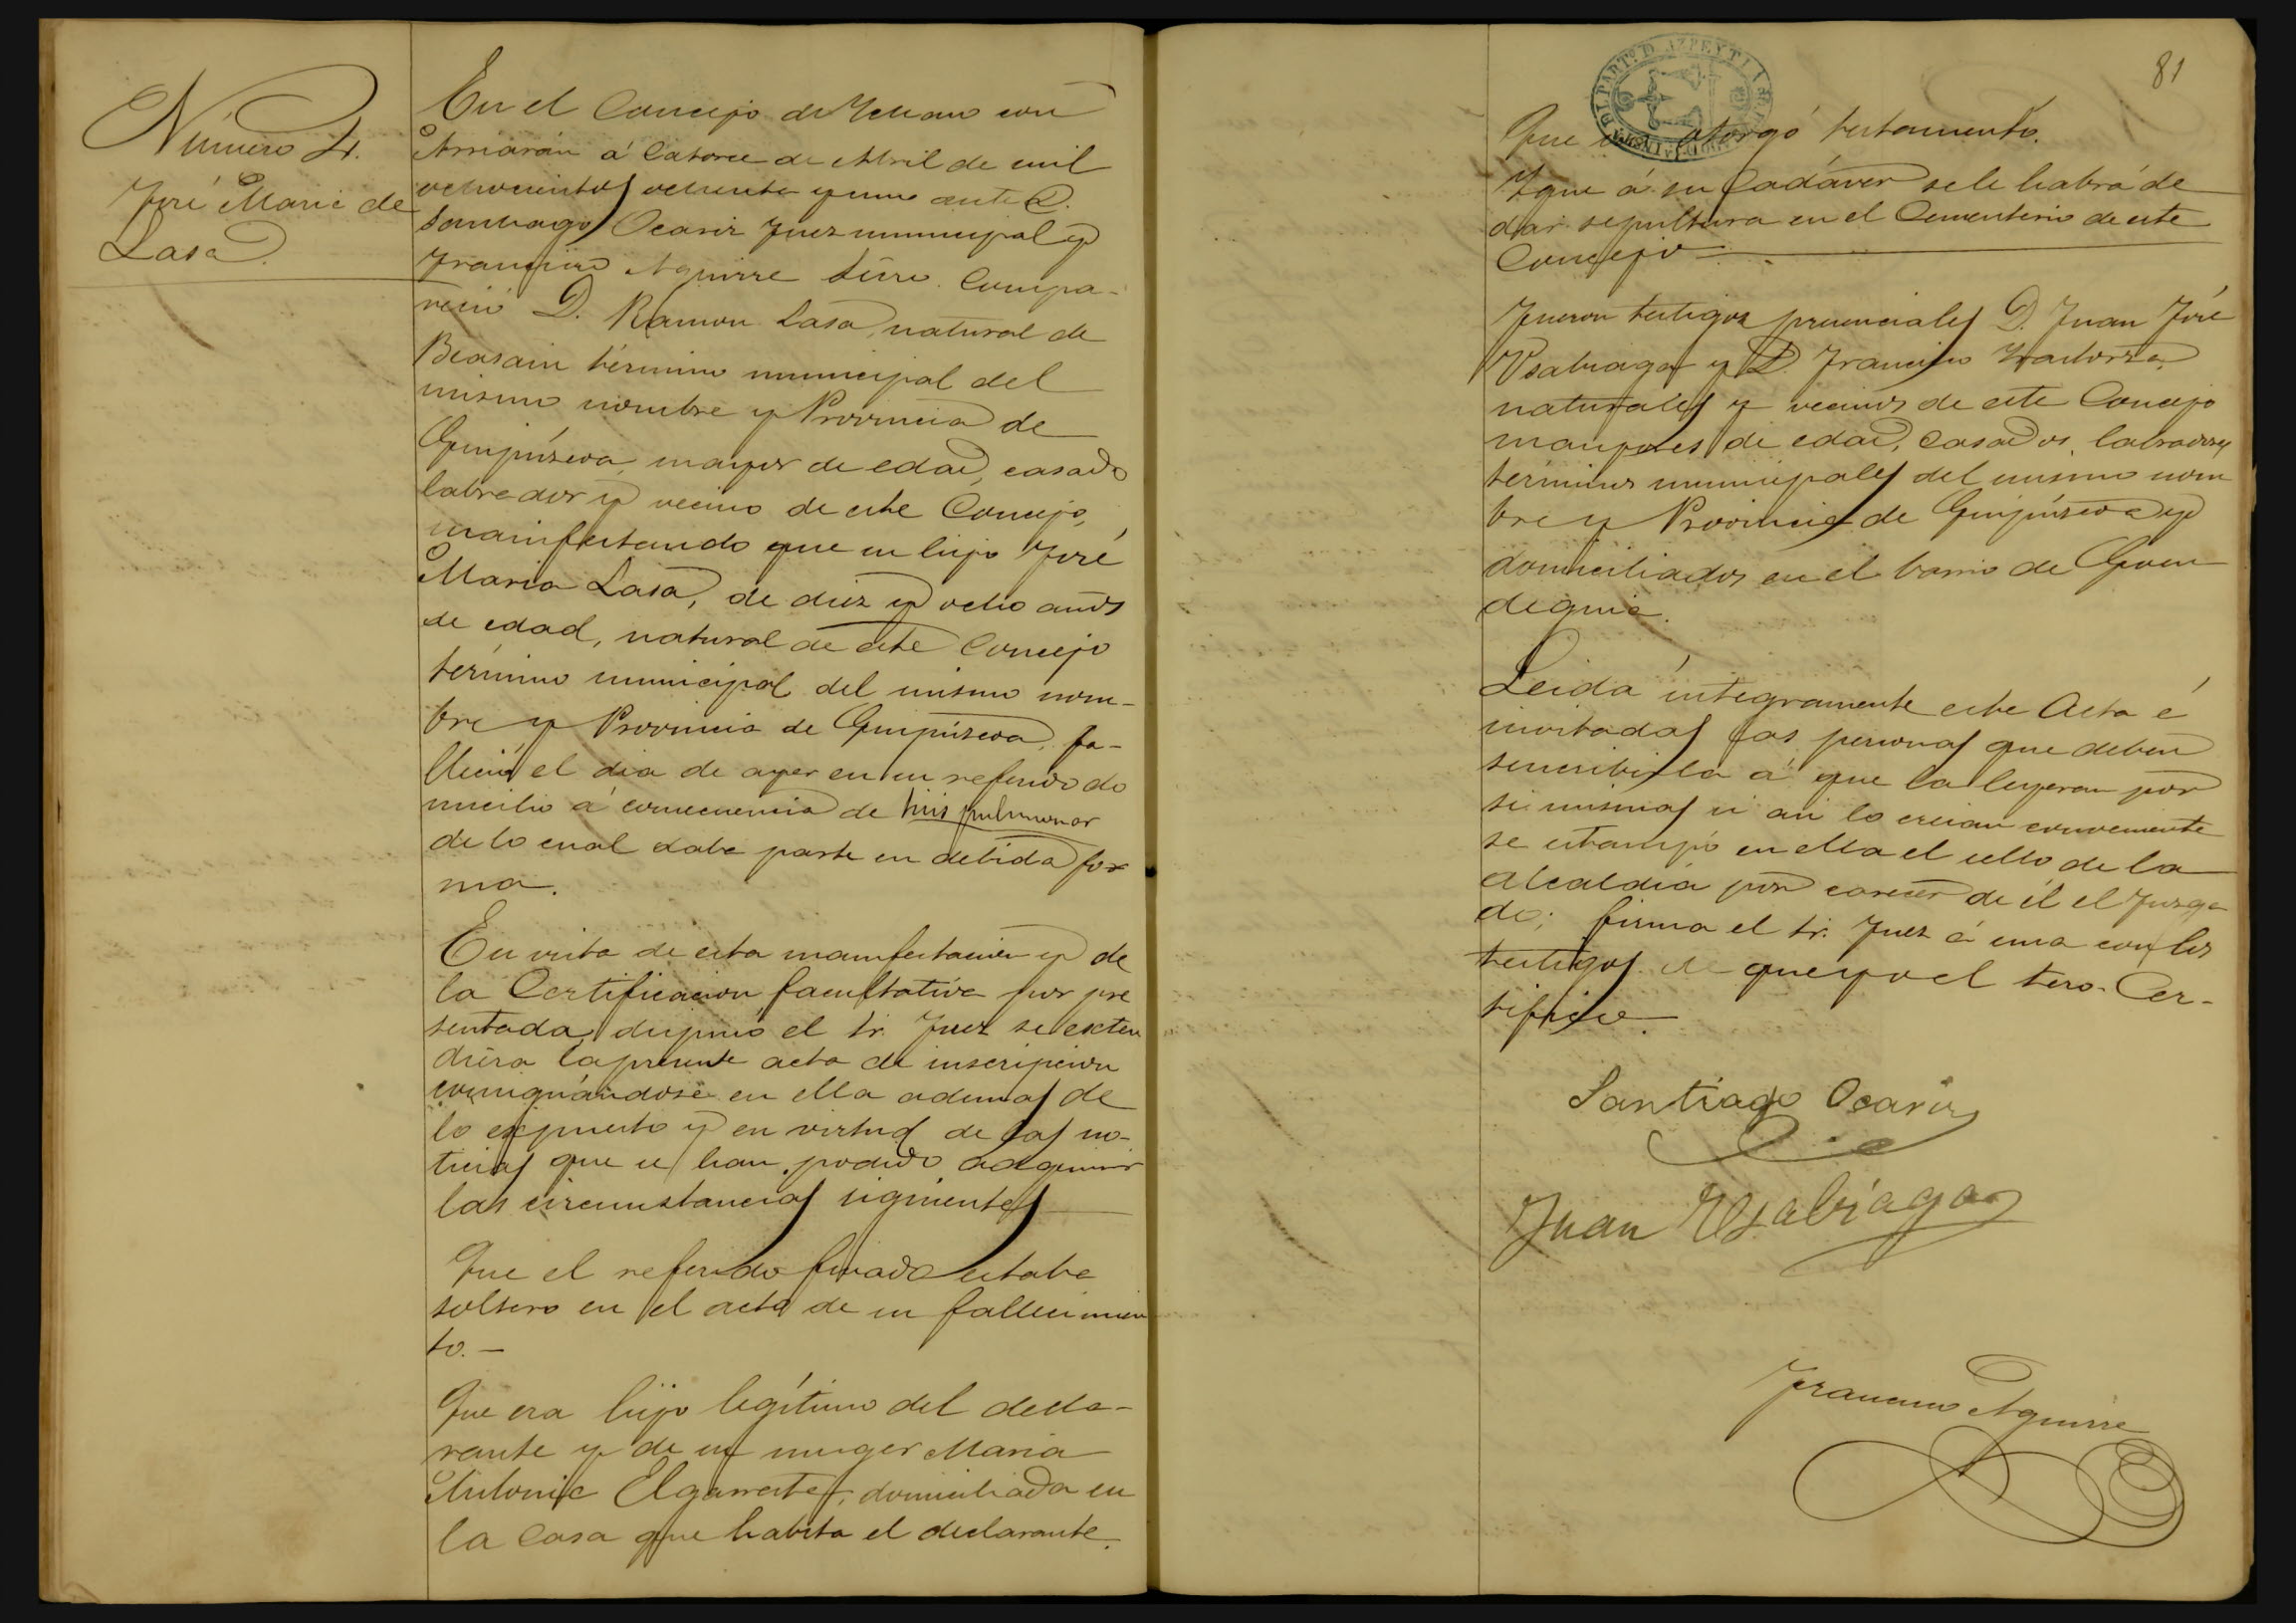 Número 4.
José Maria de
Lasa
En el Concejo de Ychaso con
Arriarán á Catorce de Abril de mil
ochocientos ochenta y uno ante D.
Santiago Ocariz Juez municipal y
Francisco Aguirre Srio. Compa-
reció D. Ramon Lasa, natural de
Beasain término municipal del
mismo nombre y Provincia de
Guipúzcoa, mayor de edad, casado
labrador y vecino de este Concejo,
manifestando que su hijo José
Maria Lasa, de diez y ocho años
de edad, natural de este Concejo
término municipal del mismo nom-
bre y Provincia de Guipúzcoa, fa-
lleció el dia de ayer en su referido do
micilio á consecuencia de tisis pulmonar
de lo cual daba parte en debida for
ma.
En vista de esta manifestacion y de
la Certificacion facultativa por pre
sentada dispuso el Sr. Juez se exten
diera la presente acta de inscripcion
consignándose en ella ademas de
lo expuesto y en virtud de las no-
ticias que se han podido adquirir
las circunstancias siguientes
Que el referido finado estaba
soltero en el acto de su fallecimien
to. —
Que era hijo legítimo del decla-
rante y de su muger Maria
Antonia Elgarresta, domiciliada en
la Casa que habita el declarante.
81
DEL PARTº D AZPEYTIA
Que otorgó testamento.
Y que á su Cadáver se le habrá de
dar sepultura en el Cementerio de este
Concejo
Fueron testigos presenciales D. Juan José
Usabiaga y D. Francisco
naturales y vecinos de este Concejo
mayores de edad, casados, labradores
términos municipales del mismo nom
bre y Provincia de Guipúzcoa y
domiciliados en el barrio de Goien
deguia.
Leida íntegramente este Acta é
invitadas las personas que deben
suscribirla á que la leyeran por
si mismas si asi lo creian conveniente
se estampó en ella el sello de la
Alcaldía por carecer de él el Juzga
do; firma el Sr. Juez á una con los
testigos de que yo el Srio. Cer-
tifico.
Santiago Ocariz
Juan Usabiaga
Francisco Aguirre